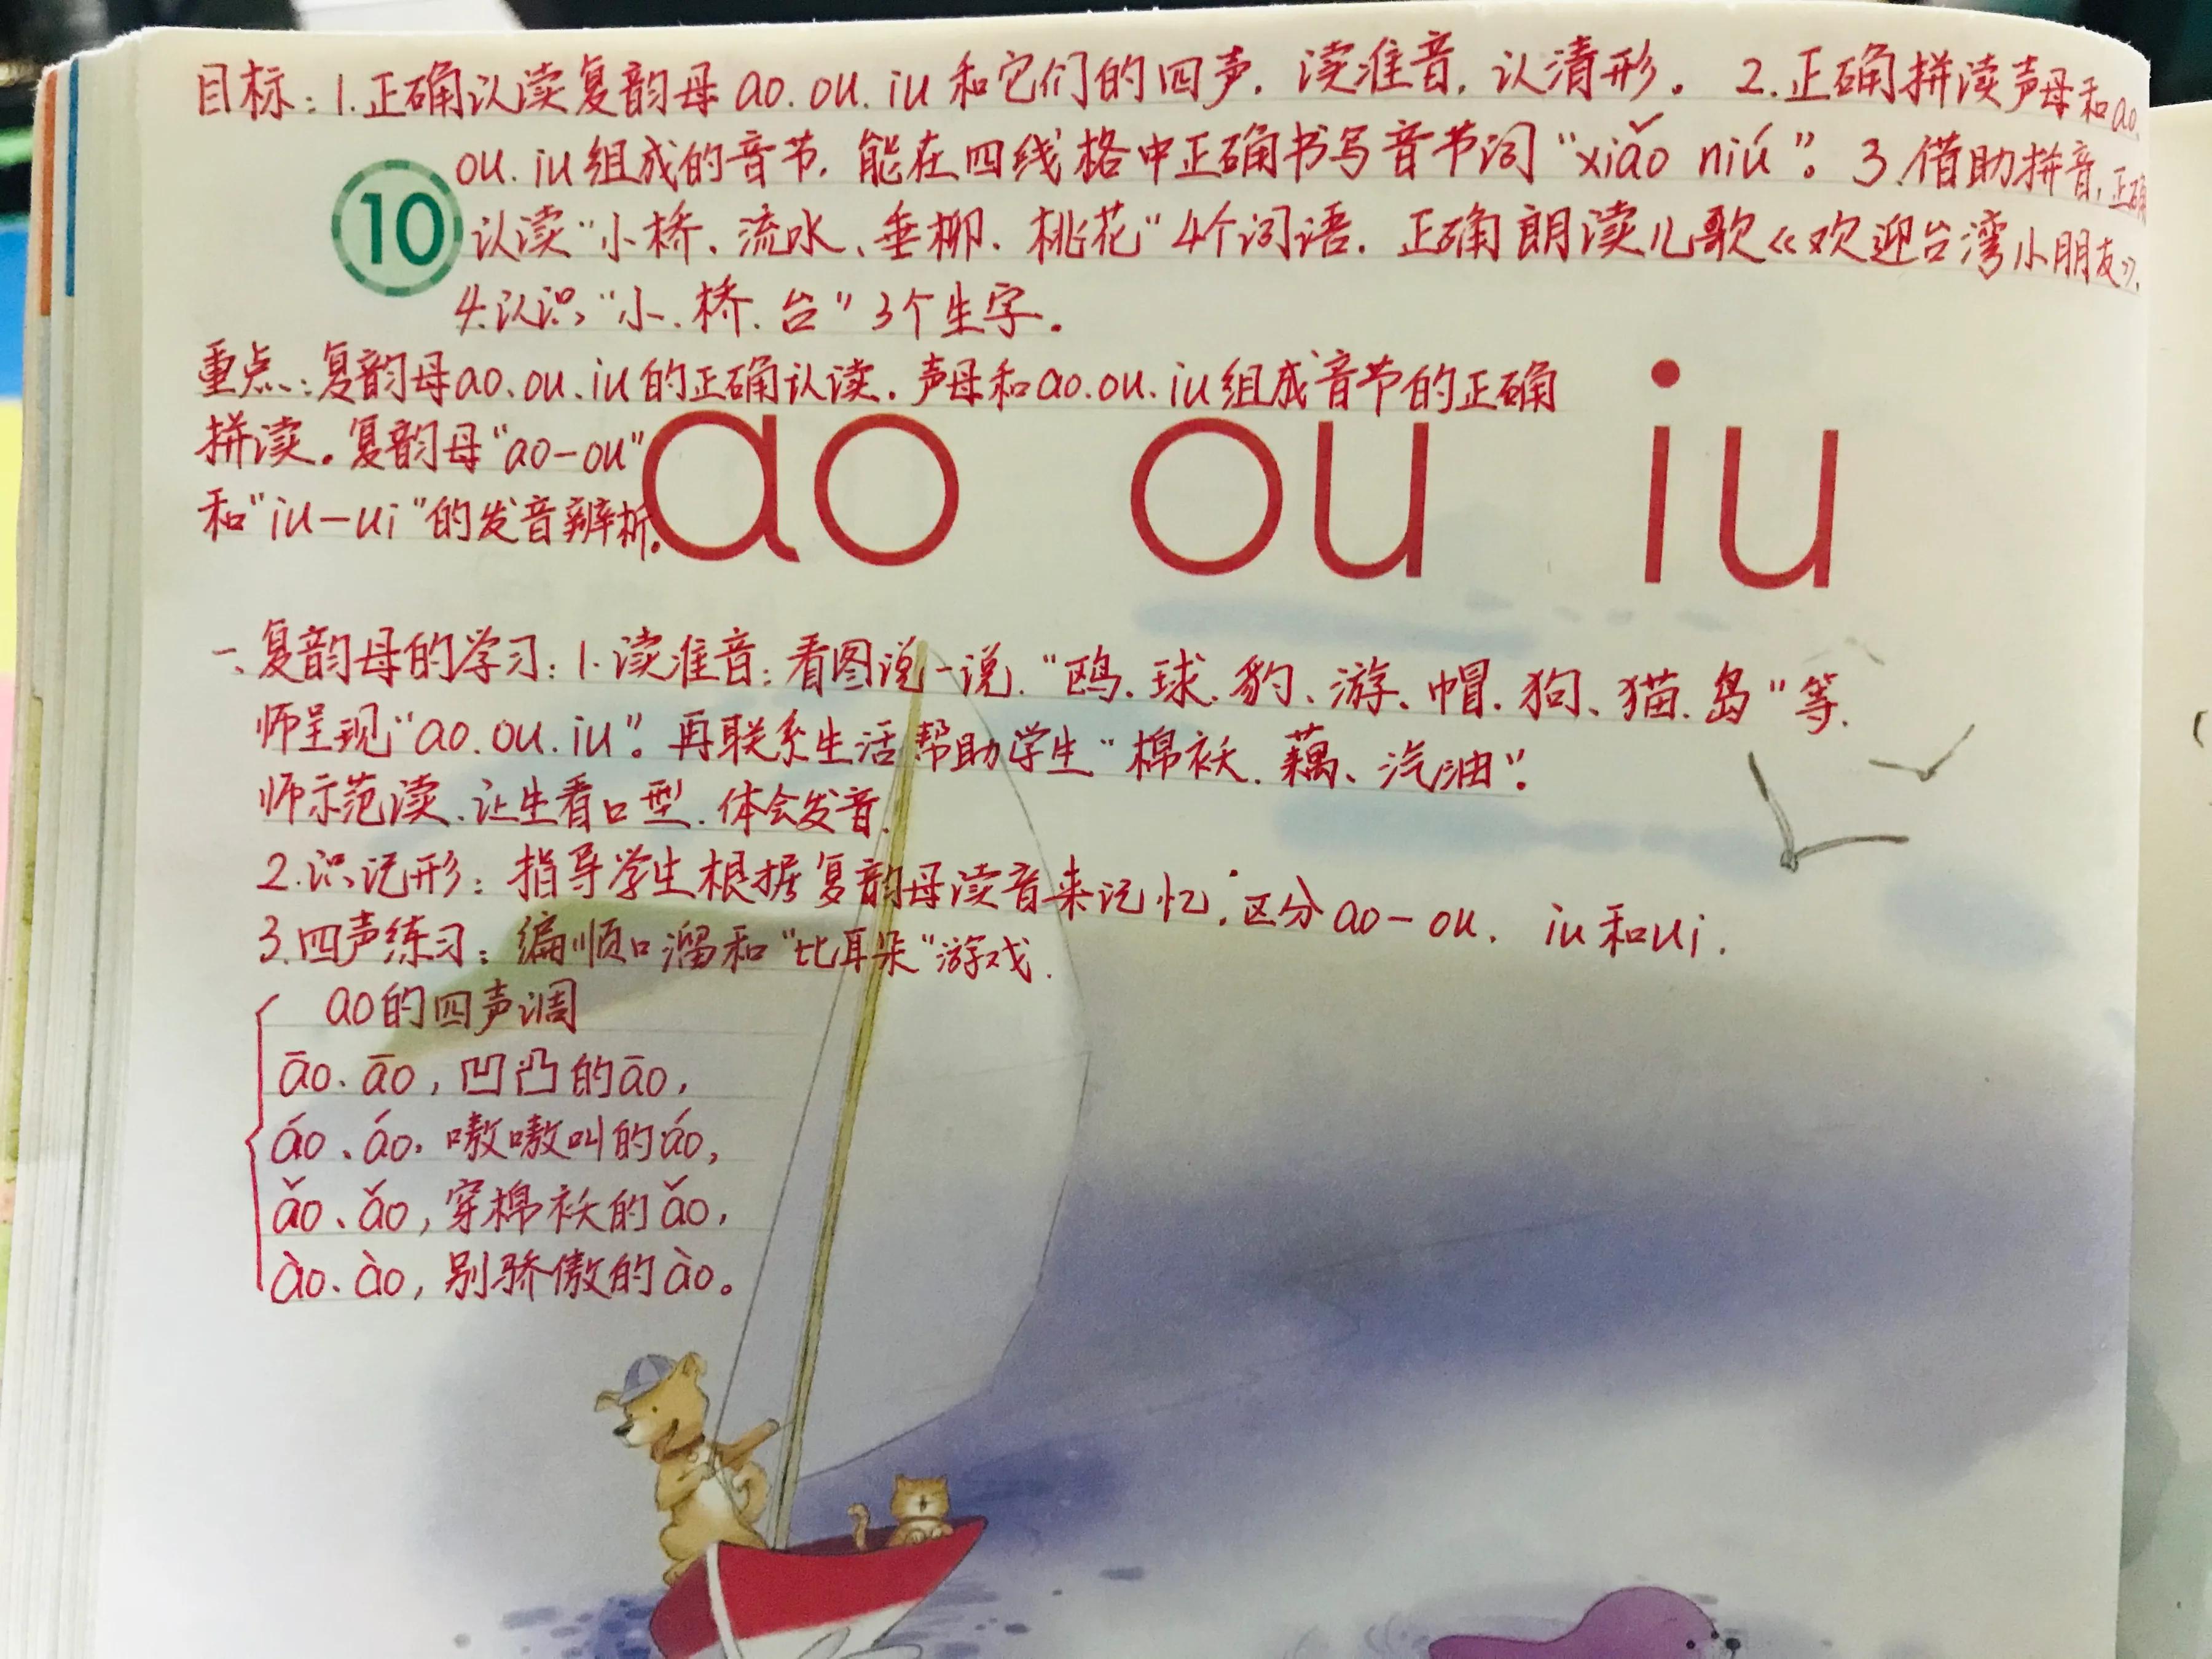 目标：1.正确认读复韵母ao.ou.iu和它们的四声，读准音，认清形。 2.正确拼读声母和ao.
ou.iu组成的音节，能在四线格中正确书写音节词“xiǎo niú”。3.借助拼音，正确
10
认读“小桥、流水、垂柳、桃花”4个词语，正确朗读儿歌《欢迎台湾小朋友》.
4.认识“小、桥、台”3个生字。
重点：复韵母ao.ou.iu的正确认读。声母和ao.ou.iu组成音节的正确
拼读。复韵母“ao-ou”
和“iu-ui”的发音辨析。
ao ou iu
一、复韵母的学习：1.读准音：看图说一说，“鸥、球、豹、游、帽、狗、猫、岛”等.
师呈现“ao.ou.iu”。再联系生活帮助学生“棉袄、藕、汽油”.
师示范读、让生看口型、体会发音.
2.识记形：指导学生根据复韵母读音来记忆，区分ao-ou. iu和ui.
3.四声练习：编顺口溜和“比耳朵”游戏.
ao的四声调
āo、āo，凹凸的āo，
áo、áo，嗷嗷叫的áo，
ǎo、ǎo，穿棉袄的ǎo，
ào、ào，别骄傲的ào。